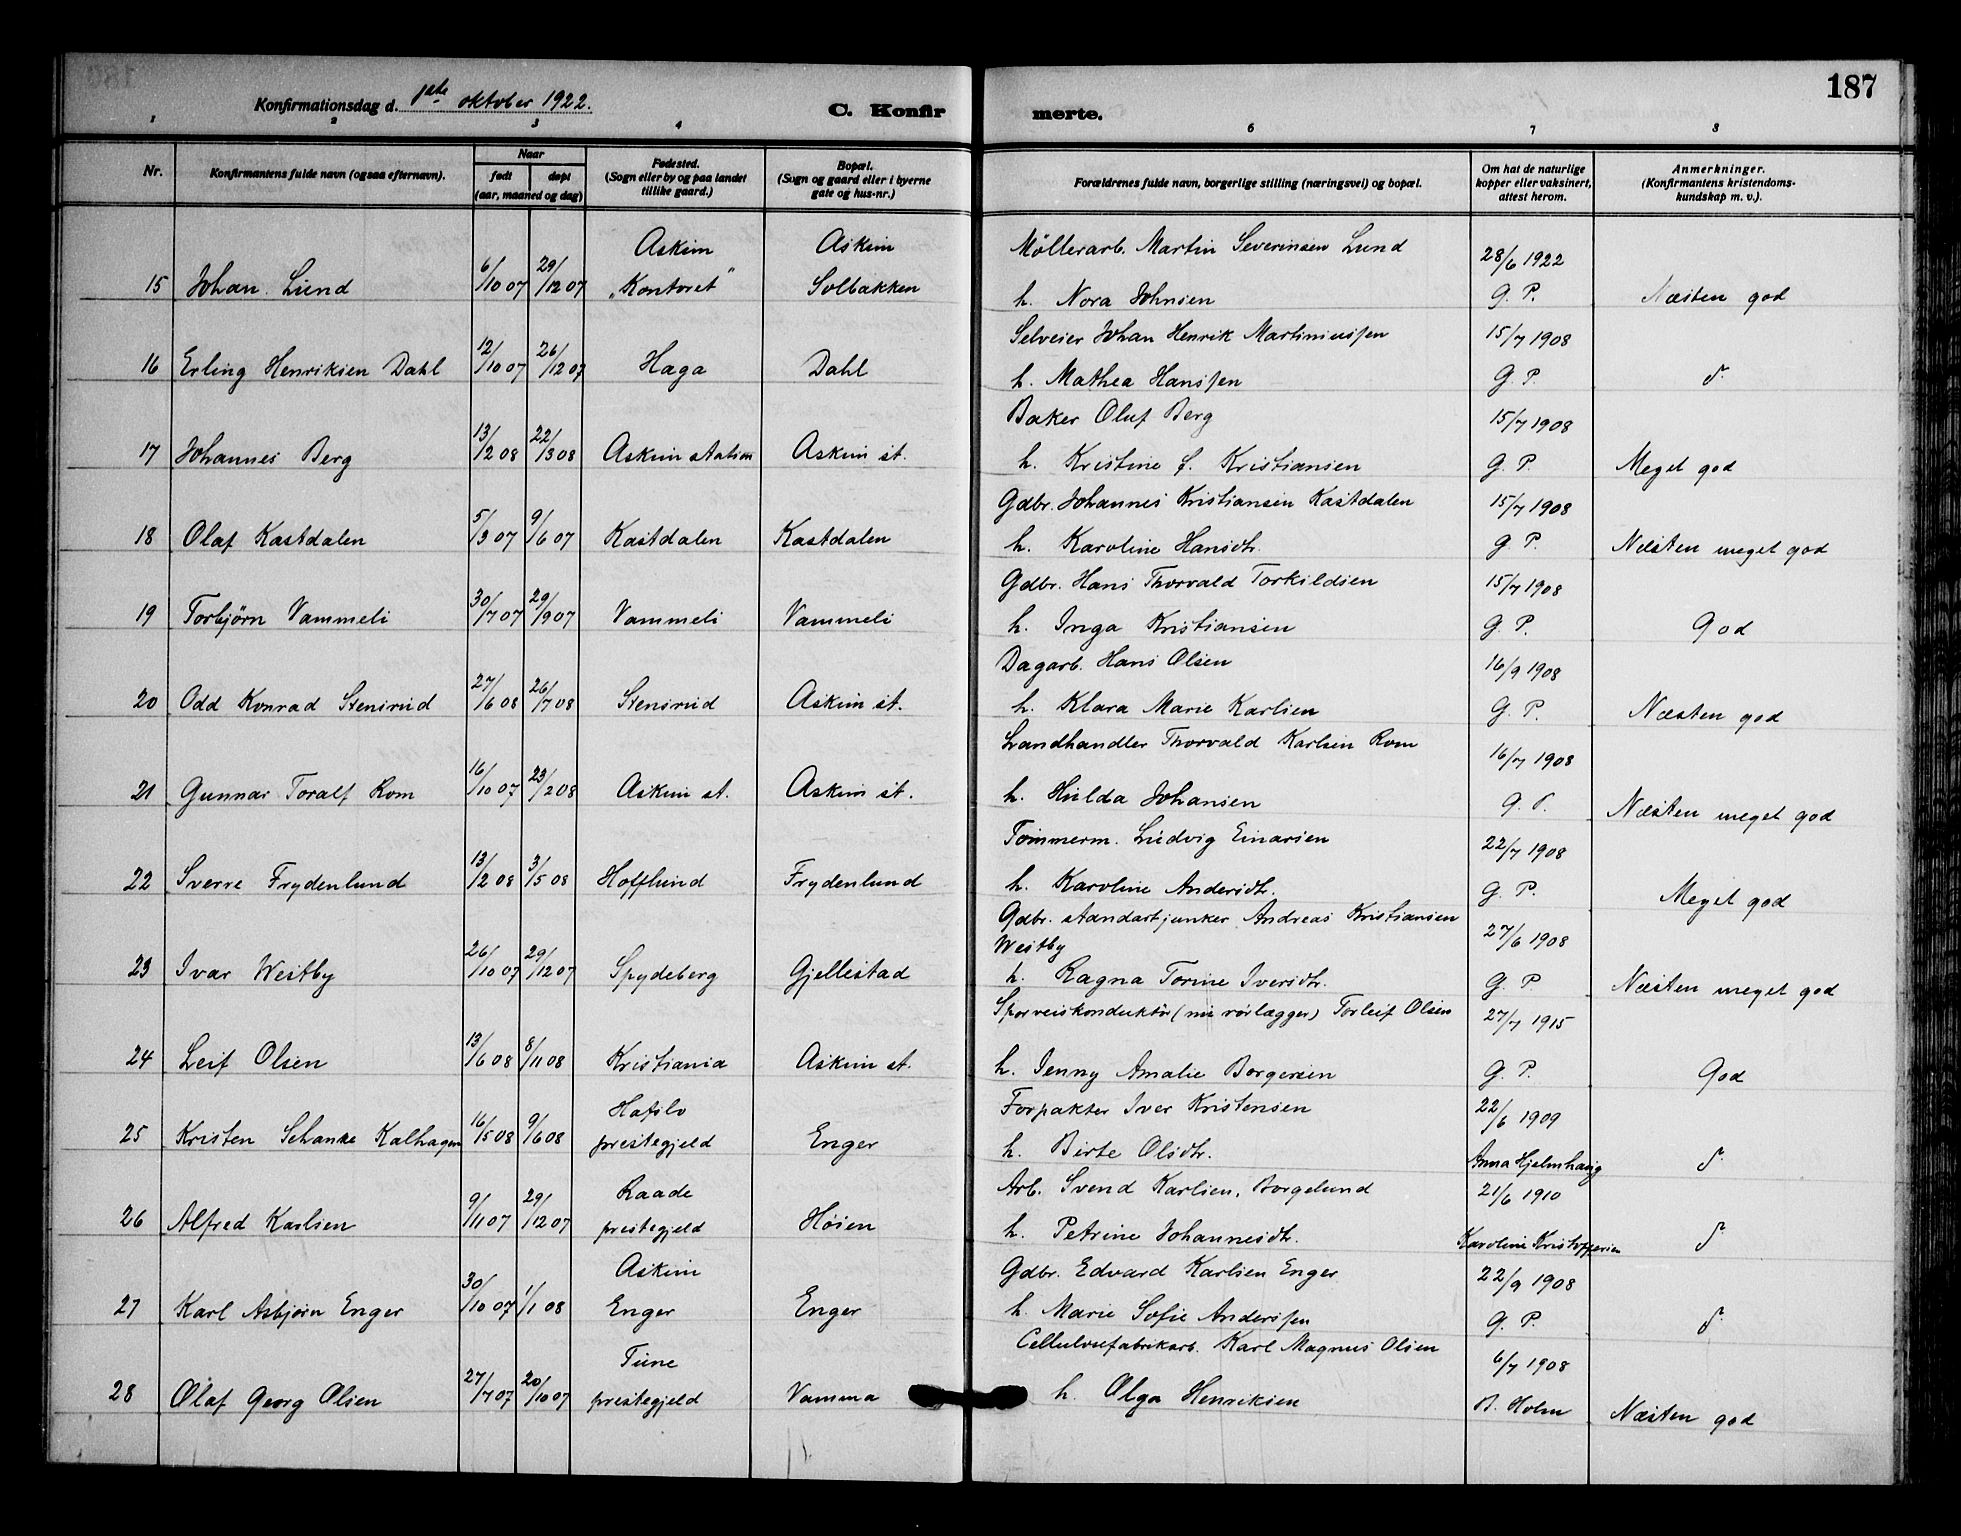 187
Konfirmationsdag d. 1ste oktober 1922.
C. Konfir merte.
1 2 3 4 6 7 8
Nr.
Konfirmantens fulde navn (ogsaa efternavn).
Naar
født døpt
(aar, maaned og dag)
Fødested.
(Sogn eller by og paa landet
tillike gaard.)
Bopæl.
(Sogn og gaard eller i byerne
gate og hus-nr.)
Forældrenes fulde navn, borgerlige stilling (næringsvei) og bopæl.
Om hat de naturlige
kopper eller vaksinert,
attest herom.
Anmerkninger.
(Konfirmantens kristendoms-
kundskap m. v.).
Askim Askim Møllerarb. Martin Severinsen Lund 28/6 1922
15 Johan Lund 6/10 07 29/12 07 "Kontoret" Solbakken h. Nora Johnsen G. P. Næsten god
Selveier Johan Henrik Martiniussen 15/7 1908
16 Erling Henriksen Dahl 12/10 07 26/12 07 Haga Dahl h. Mathea Hanssen G. P. d.
Baker Oluf Berg 15/7 1908
17 Johannes Berg 13/2 08 22/3 08 Askim station Askim st. h. Kristine f. Kristiansen G. P. Meget god
Gdbr. Johannes Kristiansen Kastdalen 15/7 1908
18 Olaf Kastdalen 5/3 07 9/6 07 Kastdalen Kastdalen h. Karoline Hansdtr. G. P. Næsten meget god
Gdbr. Hans Thorvald Torkildsen 15/7 1908
19 Torbjørn Vammeli 30/7 07 29/9 07 Vammeli Vammeli h. Inga Kristiansen G. P. God
Dagarb. Hans Olsen 16/9 1908
20 Odd Konrad Stensrud 27/6 08 26/7 08 Stensrud Askim st. h. Klara Marie Karlsen G. P. Næsten god
Landhandler Thorvald Karlsen Rom 16/7 1908
21 Gunnar Toralf Rom 16/10 07 23/2 08 Askim st. Askim st. h. Hulda Johansen G. P. Næsten meget god
Tømmerm. Ludvig Einarsen 22/7 1908
22 Sverre Frydenlund 13/2 08 3/5 08 Hofflund Frydenlund h. Karoline Andersdtr. G. P. Meget god
Gdbr. standartjunker Andreas Kristiansen
Westby 27/6 1908
23 Ivar Westby 26/10 07 29/12 07 Spydeberg Gjellestad h. Ragna Torine Iversdtr. G. P. Næsten meget god
Sporveiskonduktør (nu rørlægger) Torleif Olsen 27/7 1915
24 Leif Olsen 13/6 08 8/11 08 Kristiania Askim st. h. Jenny Amalie Borgersen G. P. God
Hafslo Forpakter Iver Kristensen 22/6 1909
25 Kristen Schanke Kalhagen 16/5 08 9/6 08 prestegjeld Enger h. Birte Olsdtr. Anna Hjelmhaug d.
Raade Arb. Svend Karlsen, Borgelund 21/6 1910
26 Alfred Karlsen 9/11 07 29/12 07 prestegjeld Høien h. Petrine Johannesdtr. Karoline Kristoffersen d.
Askim Gdbr. Edvard Karlsen Enger 22/9 1908
27 Karl Asbjørn Enger 30/10 07 1/1 08 Enger Enger h. Marie Sofie Anderssen G. P. d.
Tune Cellulosefabrikarb. Karl Magnus Olsen 6/7 1908
28 Olaf Georg Olsen 27/7 07 20/10 07 prestegjeld Vamma h. Olga Henriksen B. Holm Næsten god